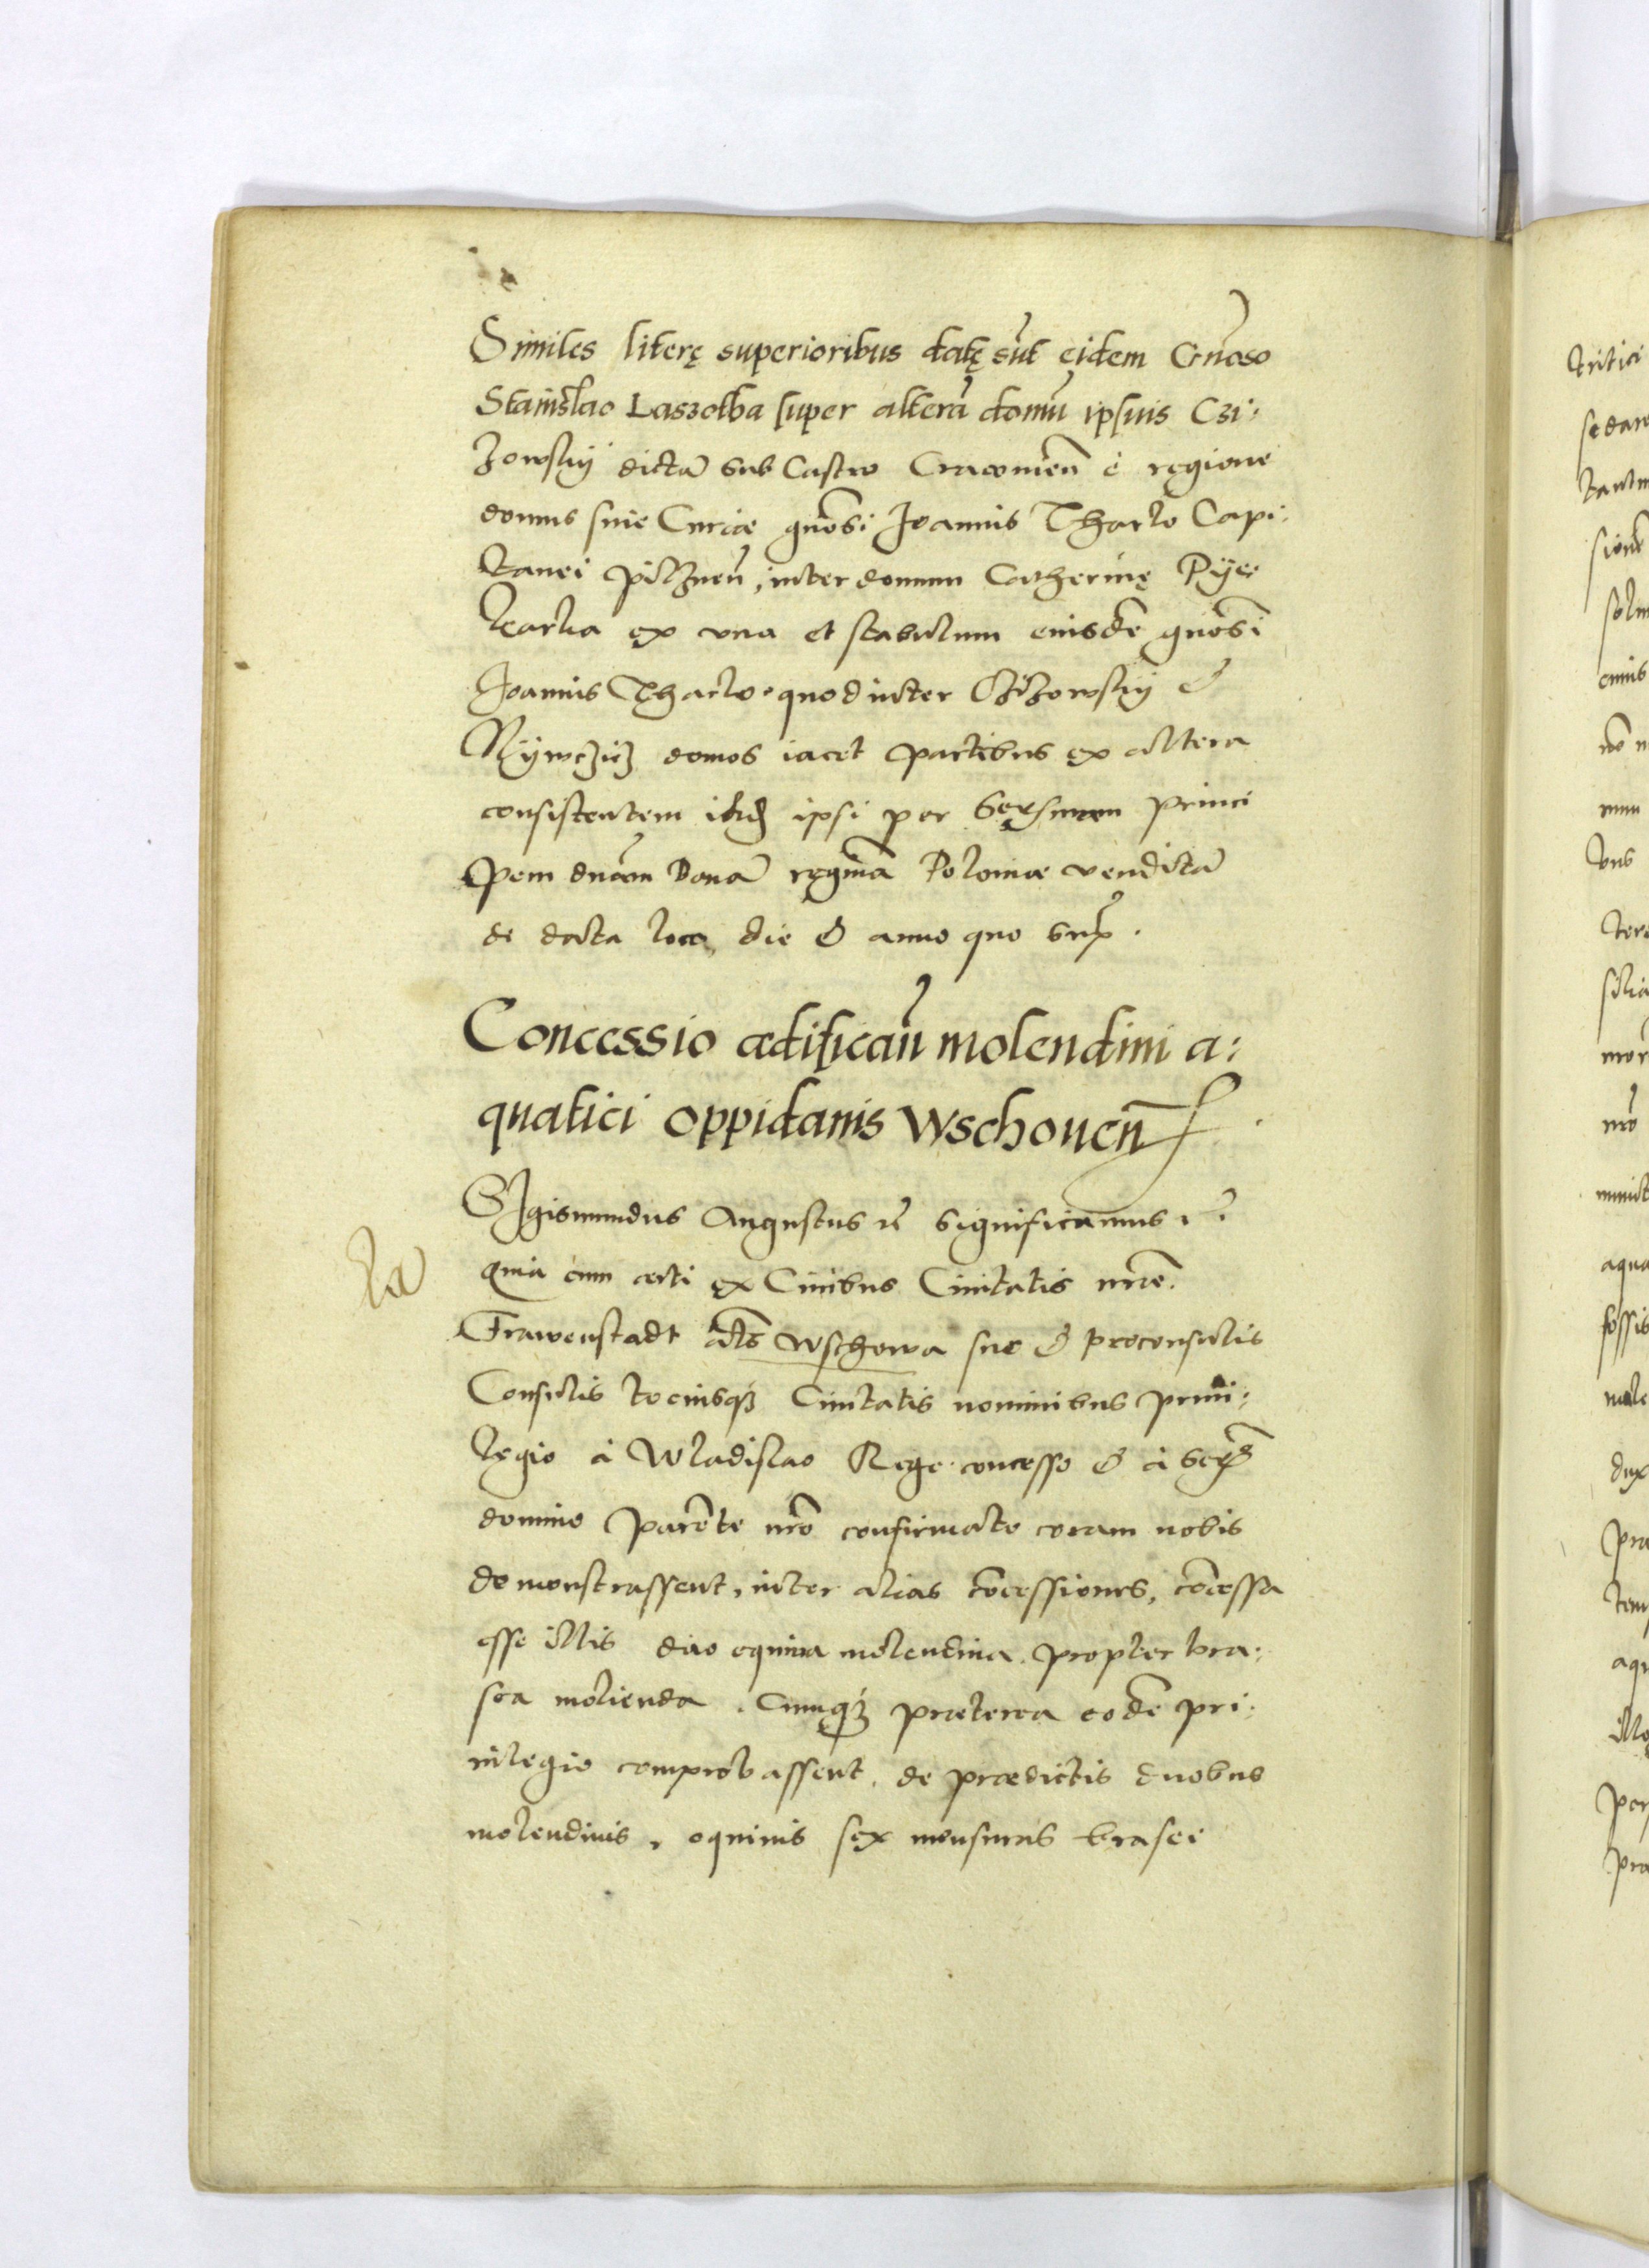 Similes literę superioribus datę sūt eidem Gnāoso
Stanislao Laszotha super alterā domū ipsius Czi:
zowskij dictā sub Castro Cracouien̄ è regione
domus siue Curiae gn̄osi Joannis Tharlo Capi:
tanei pilznen̄, inter domum Catherinę Pye:
karka ex vna et stabulum eiusdē gn̄osi
Joannis Tharlo, quod inter Czizowskij &
domos iacet partibus ex altera
consistentem ipsi per Sersmam princi
pem dnām Bonā reginā Poloniae venditā
de data loco, die & anno quo supr̄.
Concessio ædifican̄ molendini a:
quatici oppidanis Wschouen̄
SIgismundus Augustus rc̄ significamus rc̄
quia cum certi ex Ciuibus Ciuitatis nr̄ae.
Frawenstadt als Wschowa suo & proconsulis
Consulis tociusq3 Ciuitatis nominibus priui:
legio à Wladislao Rege concesso & à Ser̄
domino Parēte nrō confirmato coram nobis
demonstrassent, inter alias cōcessiones, cōcessa
esse illis duo equina molendina propter bra:
sea molienda. Cumq3 praeterea eodē pri:
uilegio comprobassent, de praedictis duobus
molendinis, equinis sex mensuras brasei
tritici